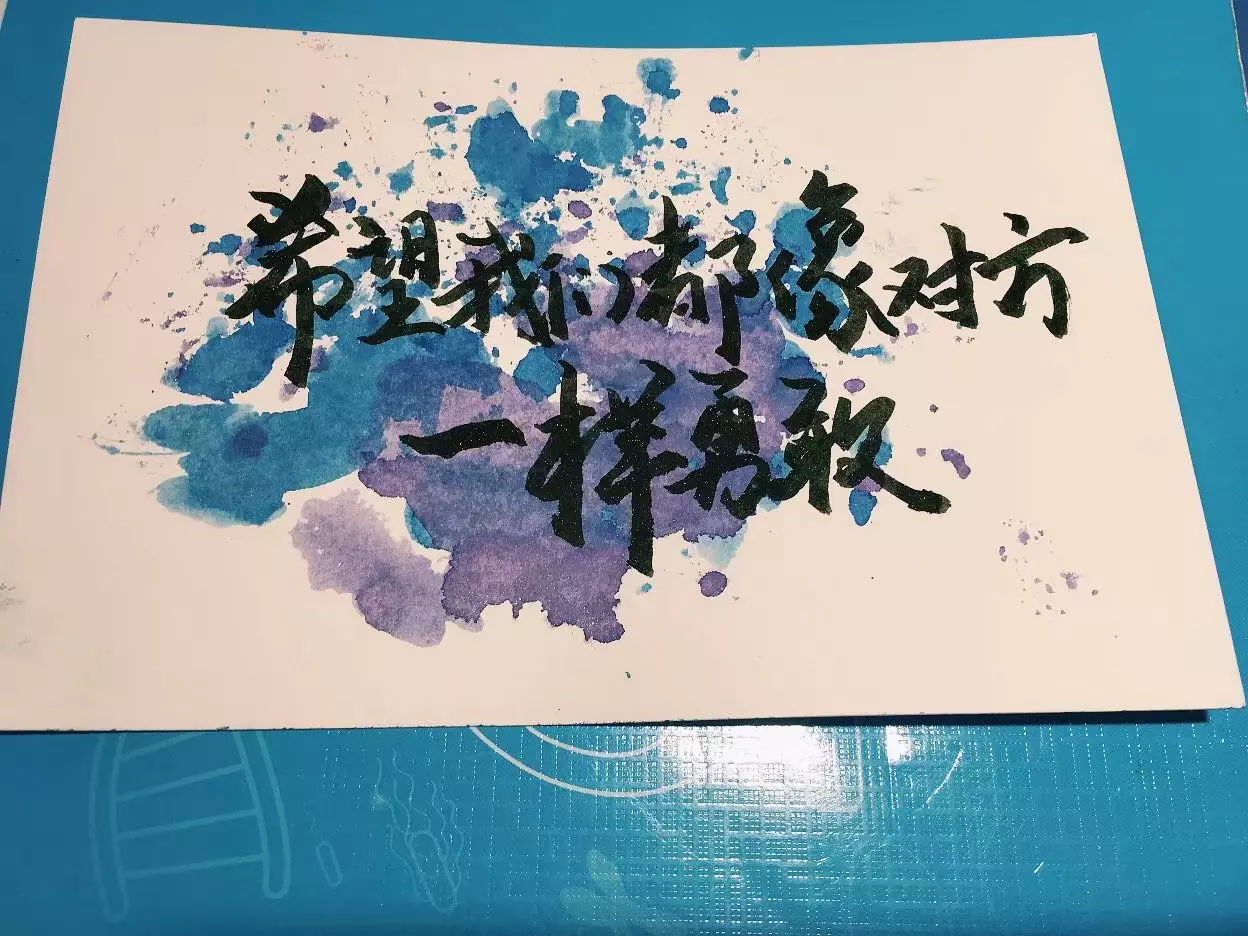 希望我们都像对方
一样勇敢